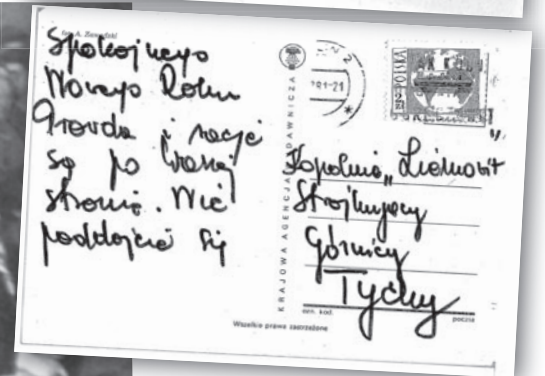 fot. A. Zawadzki
Spokojnego
Nowego Roku
Prawda i racje
są po Waszej
stronie. Nie
poddajcie się
KRAJOWA AGENCJA WYDAWNICZA
POLSKA
Kopalnia „Ziemowit”
Strajkujący
Górnicy
Tychy
ozn. kod.
poczta
Wszelkie prawa zastrzeżone